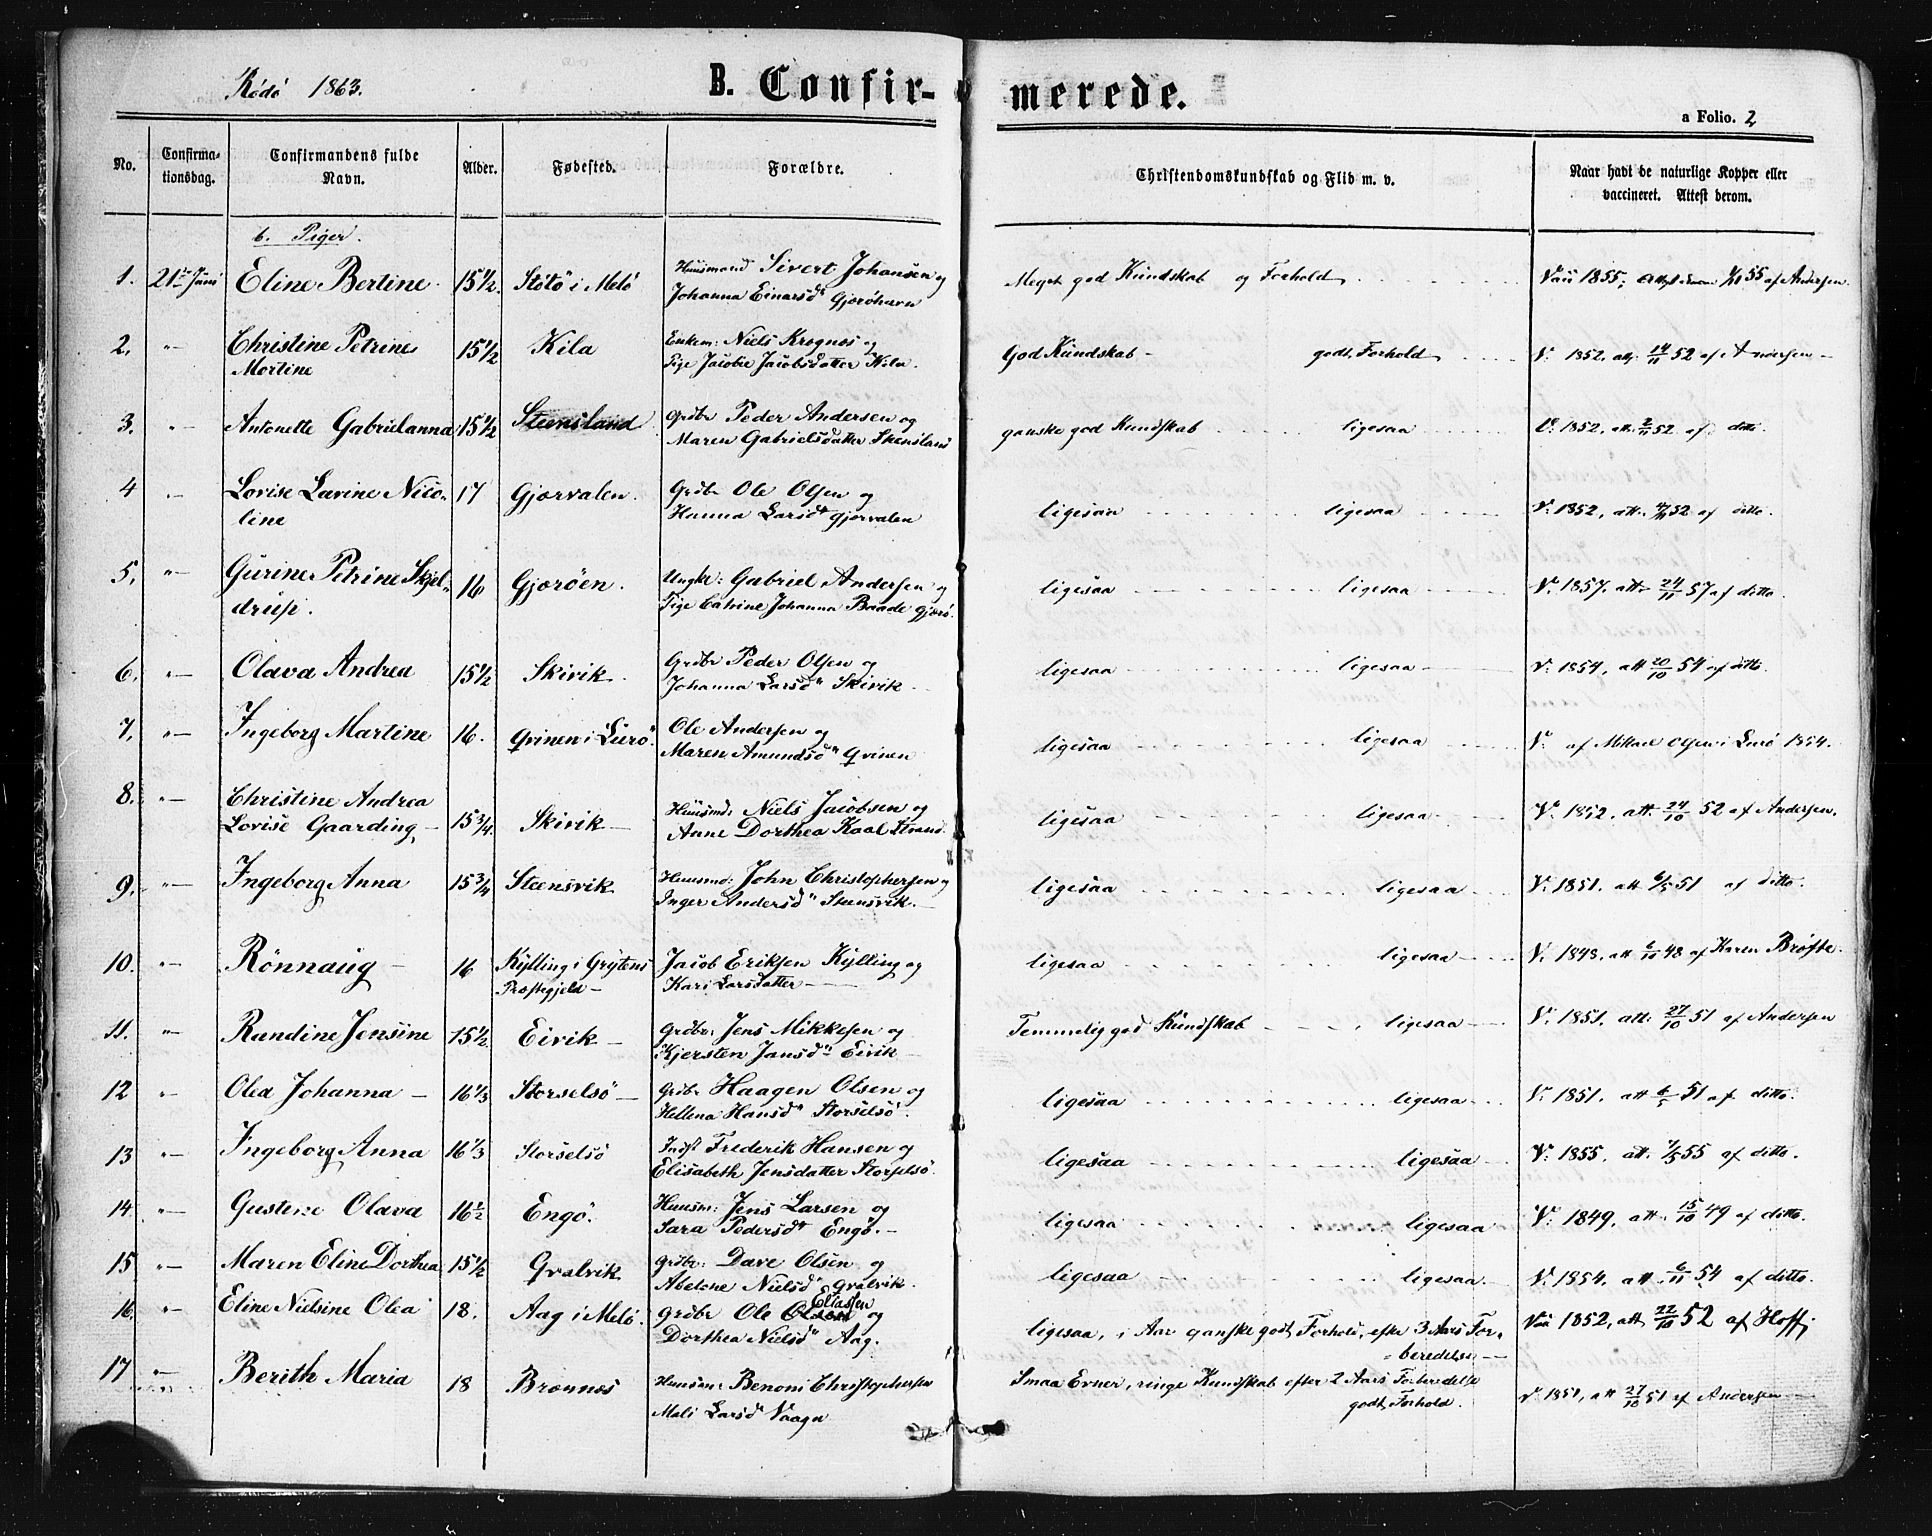 Rödö 1863.
B. Confirmerede.
a Folio. 2
No.
Confirmationsdag.
Confirmandens fulde Navn.
Alder.
Fødested.
Forældre.
Christendomskundskab og Flid m. v.
Naar havt de naturlige Kopper eller vaccineret. Attest derom.
b. Piger.
1. 21de Juni Eline Bertine 15 1/2. Stötö i Melö Huusmand Sivert Johansen og Meget god Kundskab og Forhold Vau 1855, 55 af Andersen.
Johanna Einarsdt Gjæröhavn
2. "- Christine Petrine 15 1/2 Kila Enkem: Niels Krognæs og God Kundskab - godt Forhold V. 1852. att. 14/11 52 af Andersen -
Mortine Pige Jacobs Jacobsdatter Kila.
3. "- Antonette Gabrielanna 15 1/2 Steensland Grdbr Peder Andersen og ganske god Kundskab ligesaa V. 1852. att. 2/11 52 af ditto.
Maren Gabrielsdatter Stensland
4 "- Lovise Lavine Nico- 17 Gjærvalen. Grdbr Ole Olsen og ligesaa ligesaa V. 1852, att. 52 af ditto.
line Hanna Larsdt Gjervalen
5. "- Gurine Petrine Skjel- 16 Gjæröen. Ungk: Gabriel Andersen og ligesaa ligesaa V. 1857. att 24/11 57 af ditto
drup. Pige Catrine Johanna Baade Gjærö.
6. "- Olava Andrea 15 1/2 Skivik. Grdbr Peder Olsen og ligesaa ligesaa V. 1854, att 20/10 54 af ditto.
Johanna Larsd" Skivik
7. "- Ingeborg Martine 16. Qvinen i Lurö. Ole Andersen og ligesaa ligesaa V. af Mikael Olsen i Lurö 1854.
Maren Amundsd" Qvinen
8. "- Christine Andrea 15 3/4. Skivik - Huusmd: Niels Jacobsen og ligesaa ligesaa V. 1852. att. 24/10 52 af Andersen.
Lovise Gaarding - Anne Dorthea Kaal Strand.
9. "- Ingeborg Anna 15 3/4 Steensvik Huusmd: John Christophersen og ligesaa ligesaa V. 1851. att 6/5 51 af ditto.
Inger Andersd" Stensvik.
10. "- Rönnaug - 16 Kylling i Grytens Jacob Eriksen Kylling og ligesaa ligesaa V. 1848. att 6/10 48 af Karen Bröste.
Præstegjeld - Kari Larsdatter -
11. "- Randine Jensine 15 1/2. Eivik - Grdbr: Jens Mikkelsen og Temmelig god Kundskab ligesaa V. 1851. att: 27/10 51 af Andersen
Kjersten Jansd" Eivik -
12 "- Olea Johanna - 16 1/3 Storselsö - Grdbr Haagen Olsen og ligesaa ligesaa V. 1851. att 6/5 51 af ditto.
Hellena Hansd" Storselsö.
13 "- Ingeborg Anna 16 1/3 Storselsö Indst Frederik Hansen og ligesaa ligesaa V. 1855. att. 7/5 55 af ditto.
Elisabeth Jensdatter Storselsö.
14. "- Gustine Olava 16 1/2 Engö. Huusm: Jens Larsen og ligesaa ligesaa V. 1849. att. 15/10 49 af ditto.
Sara Pedersdt Engö. -
15. "- Maren Eline Dorthea 15 1/2 Qvalvik Grdbr: Dave Olsen og ligesaa ligesaa. V. 1854. att. 6/11 54 af ditto.
Abelone Nielsd" Qvalvik.
16. "- Eline Nielsine Olea 18. Aag i Melö. Grdbr Ole Eliassen og ligesaa, i Aar ganske godt Forhold, efter 3 Aars For- Vau 1852, att 22/10 52 af Hoff.
Dorthea Nielsd" Aag. beredelse
17 "- Berith Maria 18 Brønnøs Huusm: Benoni Christophersen Smaa Evner, ringe Kundskab efter 2 Aars Forberedelse V. 1851, att 27/10 51 af Andersen -
Mali Larsdt Vaagn godt Forhold.